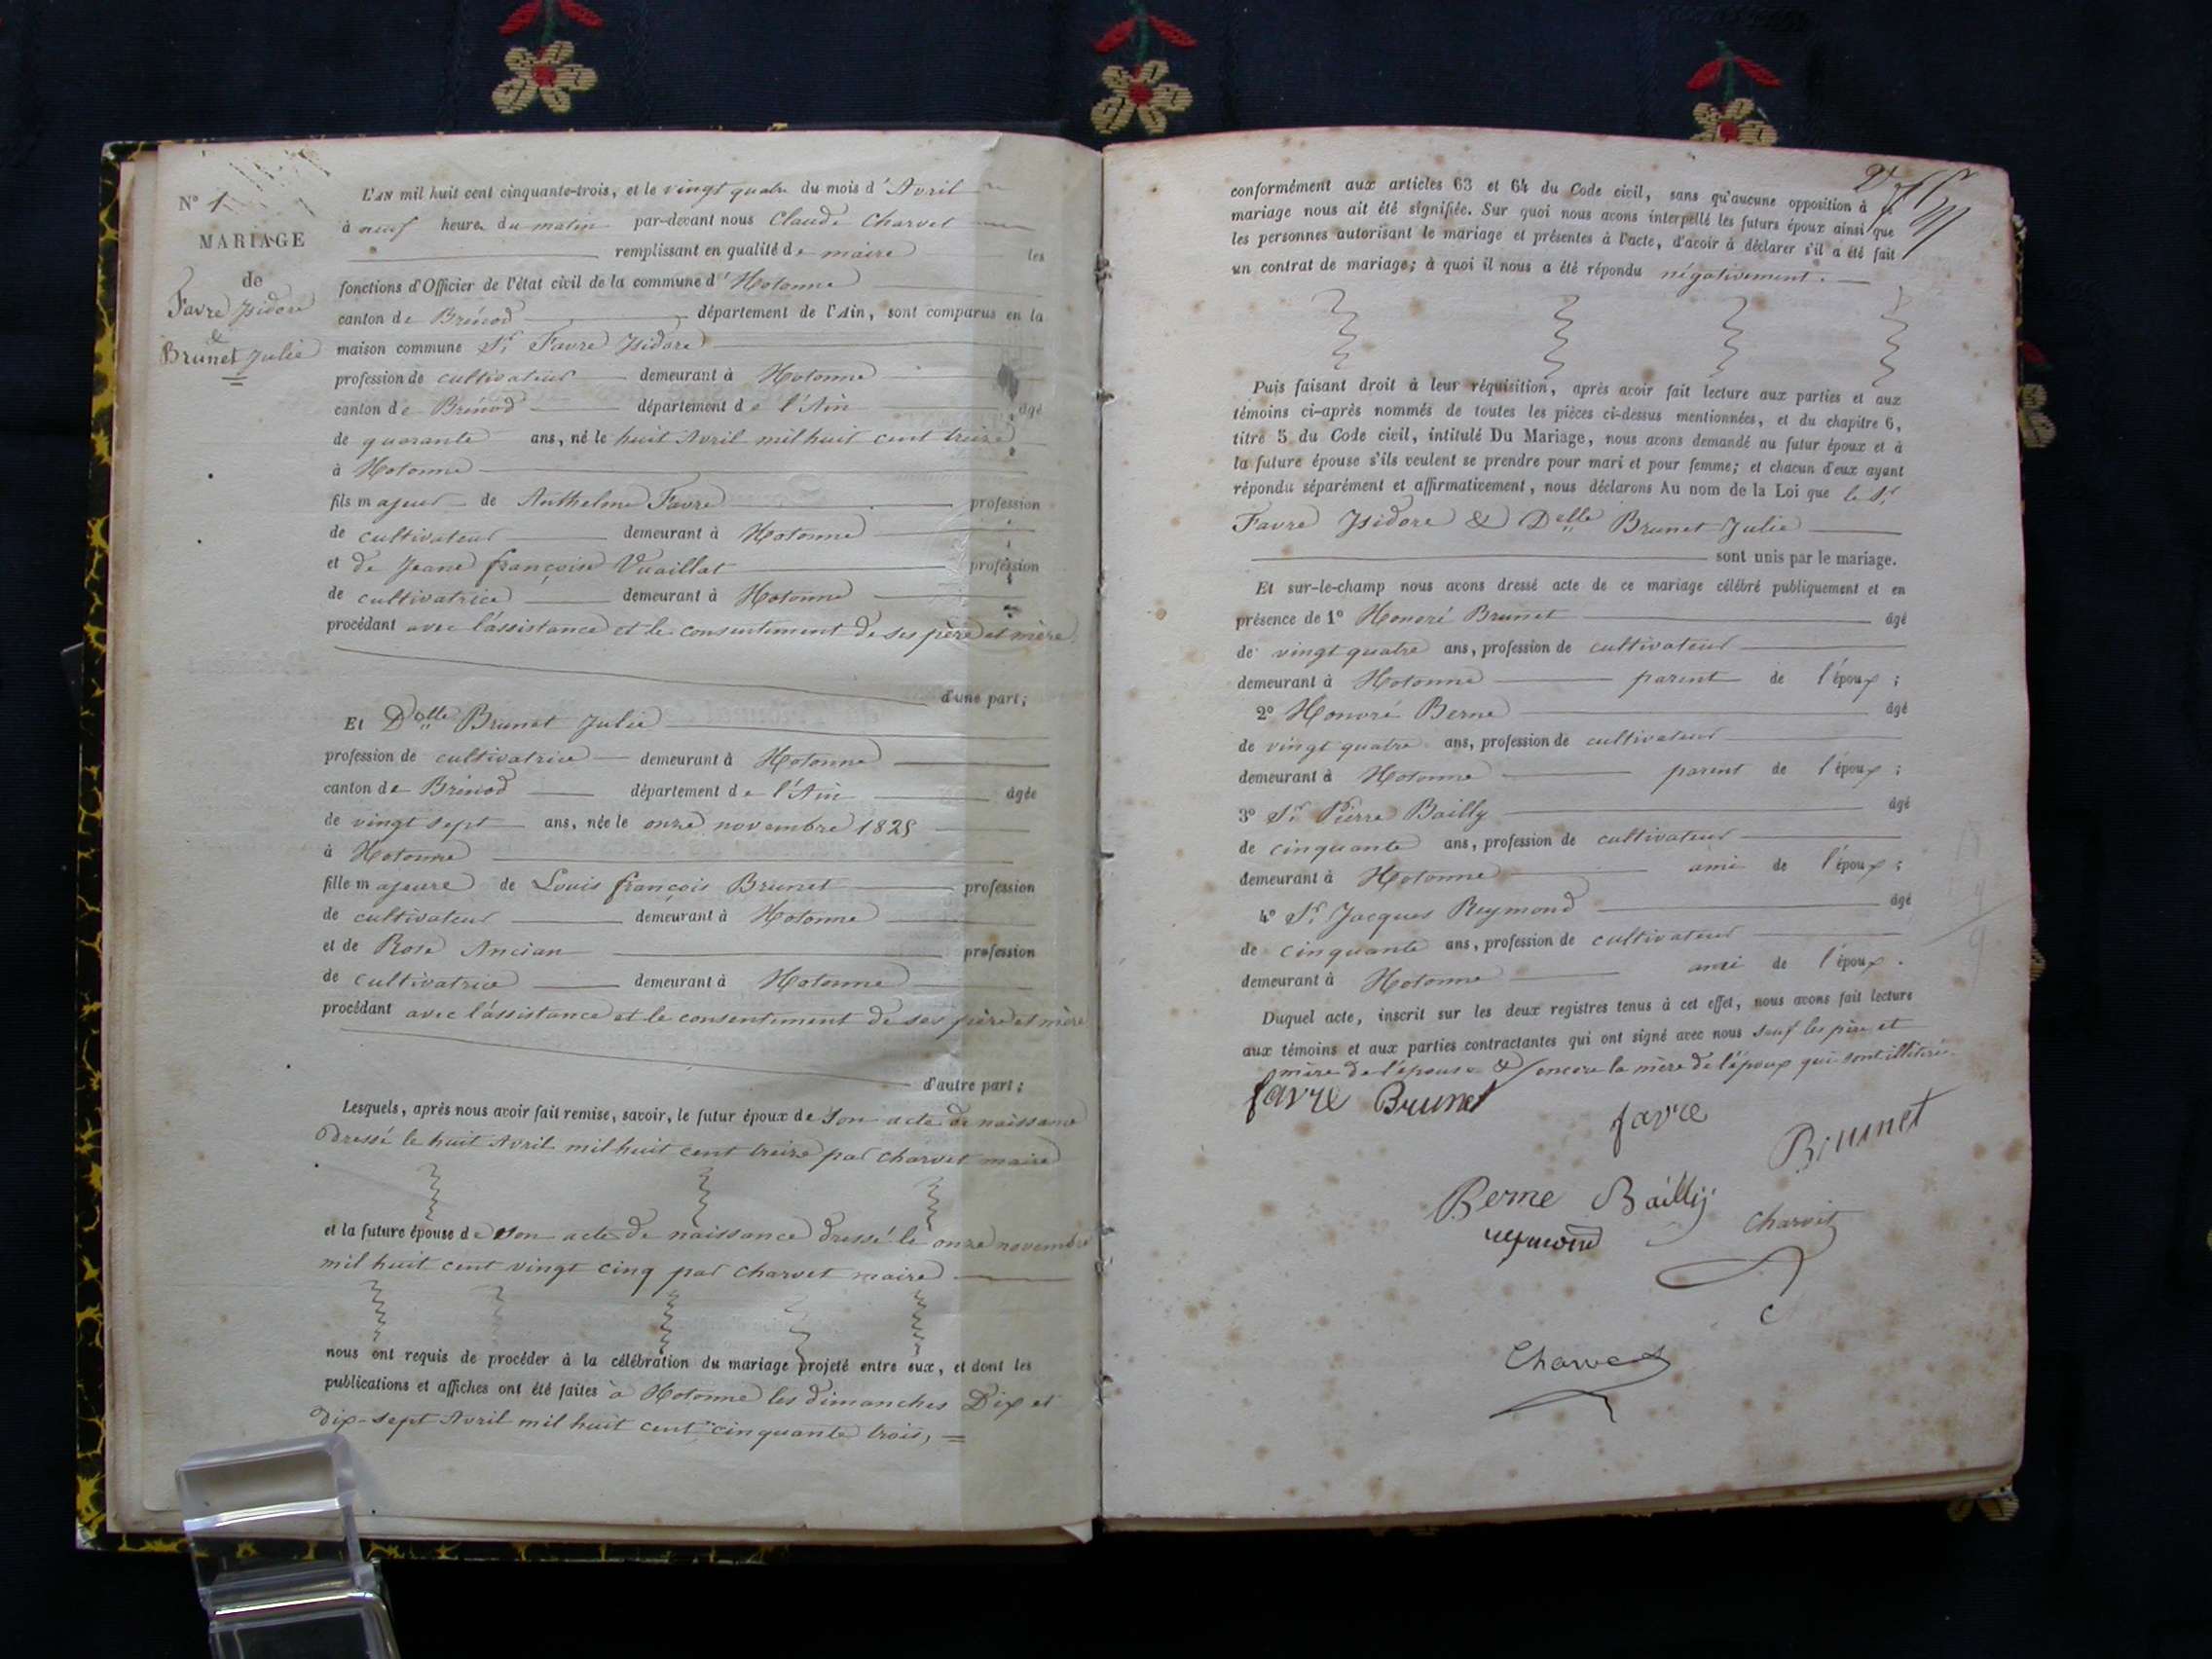 N° 1
MARIAGE
de
Favre Isidore
&
Brunet Julie
L'AN mil huit cent cinquante-trois, et le vingt quatre du mois d'Avril
à neuf heure du matin par-devant nous Claude Charvet
remplissant en qualité de maire les
fonctions d'Officier de l'état civil de la commune d'Hotonne
canton de Brénod département de l'Ain, sont comparus en la
maison commune Sr Favre Isidore
profession de cultivateur demeurant à Hotonne
canton de Brénod département de l'Ain âgé
de quarante ans, né le huit Avril mil huit cent treize
à Hotonne
fils majeur de Anthelme Favre profession
de cultivateur demeurant à Hotonne
et de Jeane françoise Vuaillat profession
de cultivatrice demeurant à Hotonne
procédant avec l'assistance et le consentement de ses père et mère
d'une part;
Et Delle Brunet Julie
profession de cultivatrice demeurant à Hotonne
canton de Brénod département de l'Ain âgée
de vingt sept ans, née le onze novembre 1825
à Hotonne
fille majeure de Louis françois Brunet profession
de cultivateur demeurant à Hotonne
et de Rose Ancian profession
de cultivatrice demeurant à Hotonne
procédant avec l'assistance et le consentement de ses père et mère
d'autre part;
Lesquels, après nous avoir fait remise, savoir, le futur époux de son acte de naissance
dressé le huit Avril mil huit cent treize par Charvet maire
et la future épouse de son acte de naissance dressé le onze novembre
mil huit cent vingt cinq par Charvet maire
nous ont requis de procéder à la célébration du mariage projeté entre eux, et dont les
publications et affiches ont été faites à Hotonne les dimanches Dix et
dix-sept Avril mil huit cent cinquante trois, =
conformément aux articles 63 et 64 du Code civil, sans qu'aucune opposition à ce
mariage nous ait été signifiée. Sur quoi nous avons interpellé les futurs époux ainsi que
les personnes autorisant le mariage et présentes à l'acte, d'avoir à déclarer s'il a été fait
un contrat de mariage; à quoi il nous a été répondu négativement.
Puis faisant droit à leur réquisition, après avoir fait lecture aux parties et aux
témoins ci-après nommés de toutes les pièces ci-dessus mentionnées, et du chapitre 6,
titre 5 du Code civil, intitulé Du Mariage, nous avons demandé au futur époux et à
la future épouse s'ils veulent se prendre pour mari et pour femme; et chacun d'eux ayant
répondu séparément et affirmativement, nous déclarons Au nom de la Loi que le Sr
Favre Isidore & Delle Brunet Julie
sont unis par le mariage.
Et sur-le-champ nous avons dressé acte de ce mariage célébré publiquement et en
présence de 1° Honoré Brunet âgé
de vingt quatre ans, profession de cultivateur
demeurant à Hotonne parent de l'époux;
2° Honoré Berne âgé
de vingt quatre ans, profession de cultivateur
demeurant à Hotonne parent de l'époux;
3° Sr Pierre Bailly âgé
de cinquante ans, profession de cultivateur
demeurant à Hotonne ami de l'époux;
4° Sr Jacques Reymond âgé
de cinquante ans, profession de cultivateur
demeurant à Hotonne ami de l'époux.
Duquel acte, inscrit sur les deux registres tenus à cet effet, nous avons fait lecture
aux témoins et aux parties contractantes qui ont signé avec nous sauf les père et
mère de l'épouse & encore la mère de l'époux qui sont illitérés
favre Brunet
favre
Brunet
Berne Bailly
reymond Charvet
Charvet